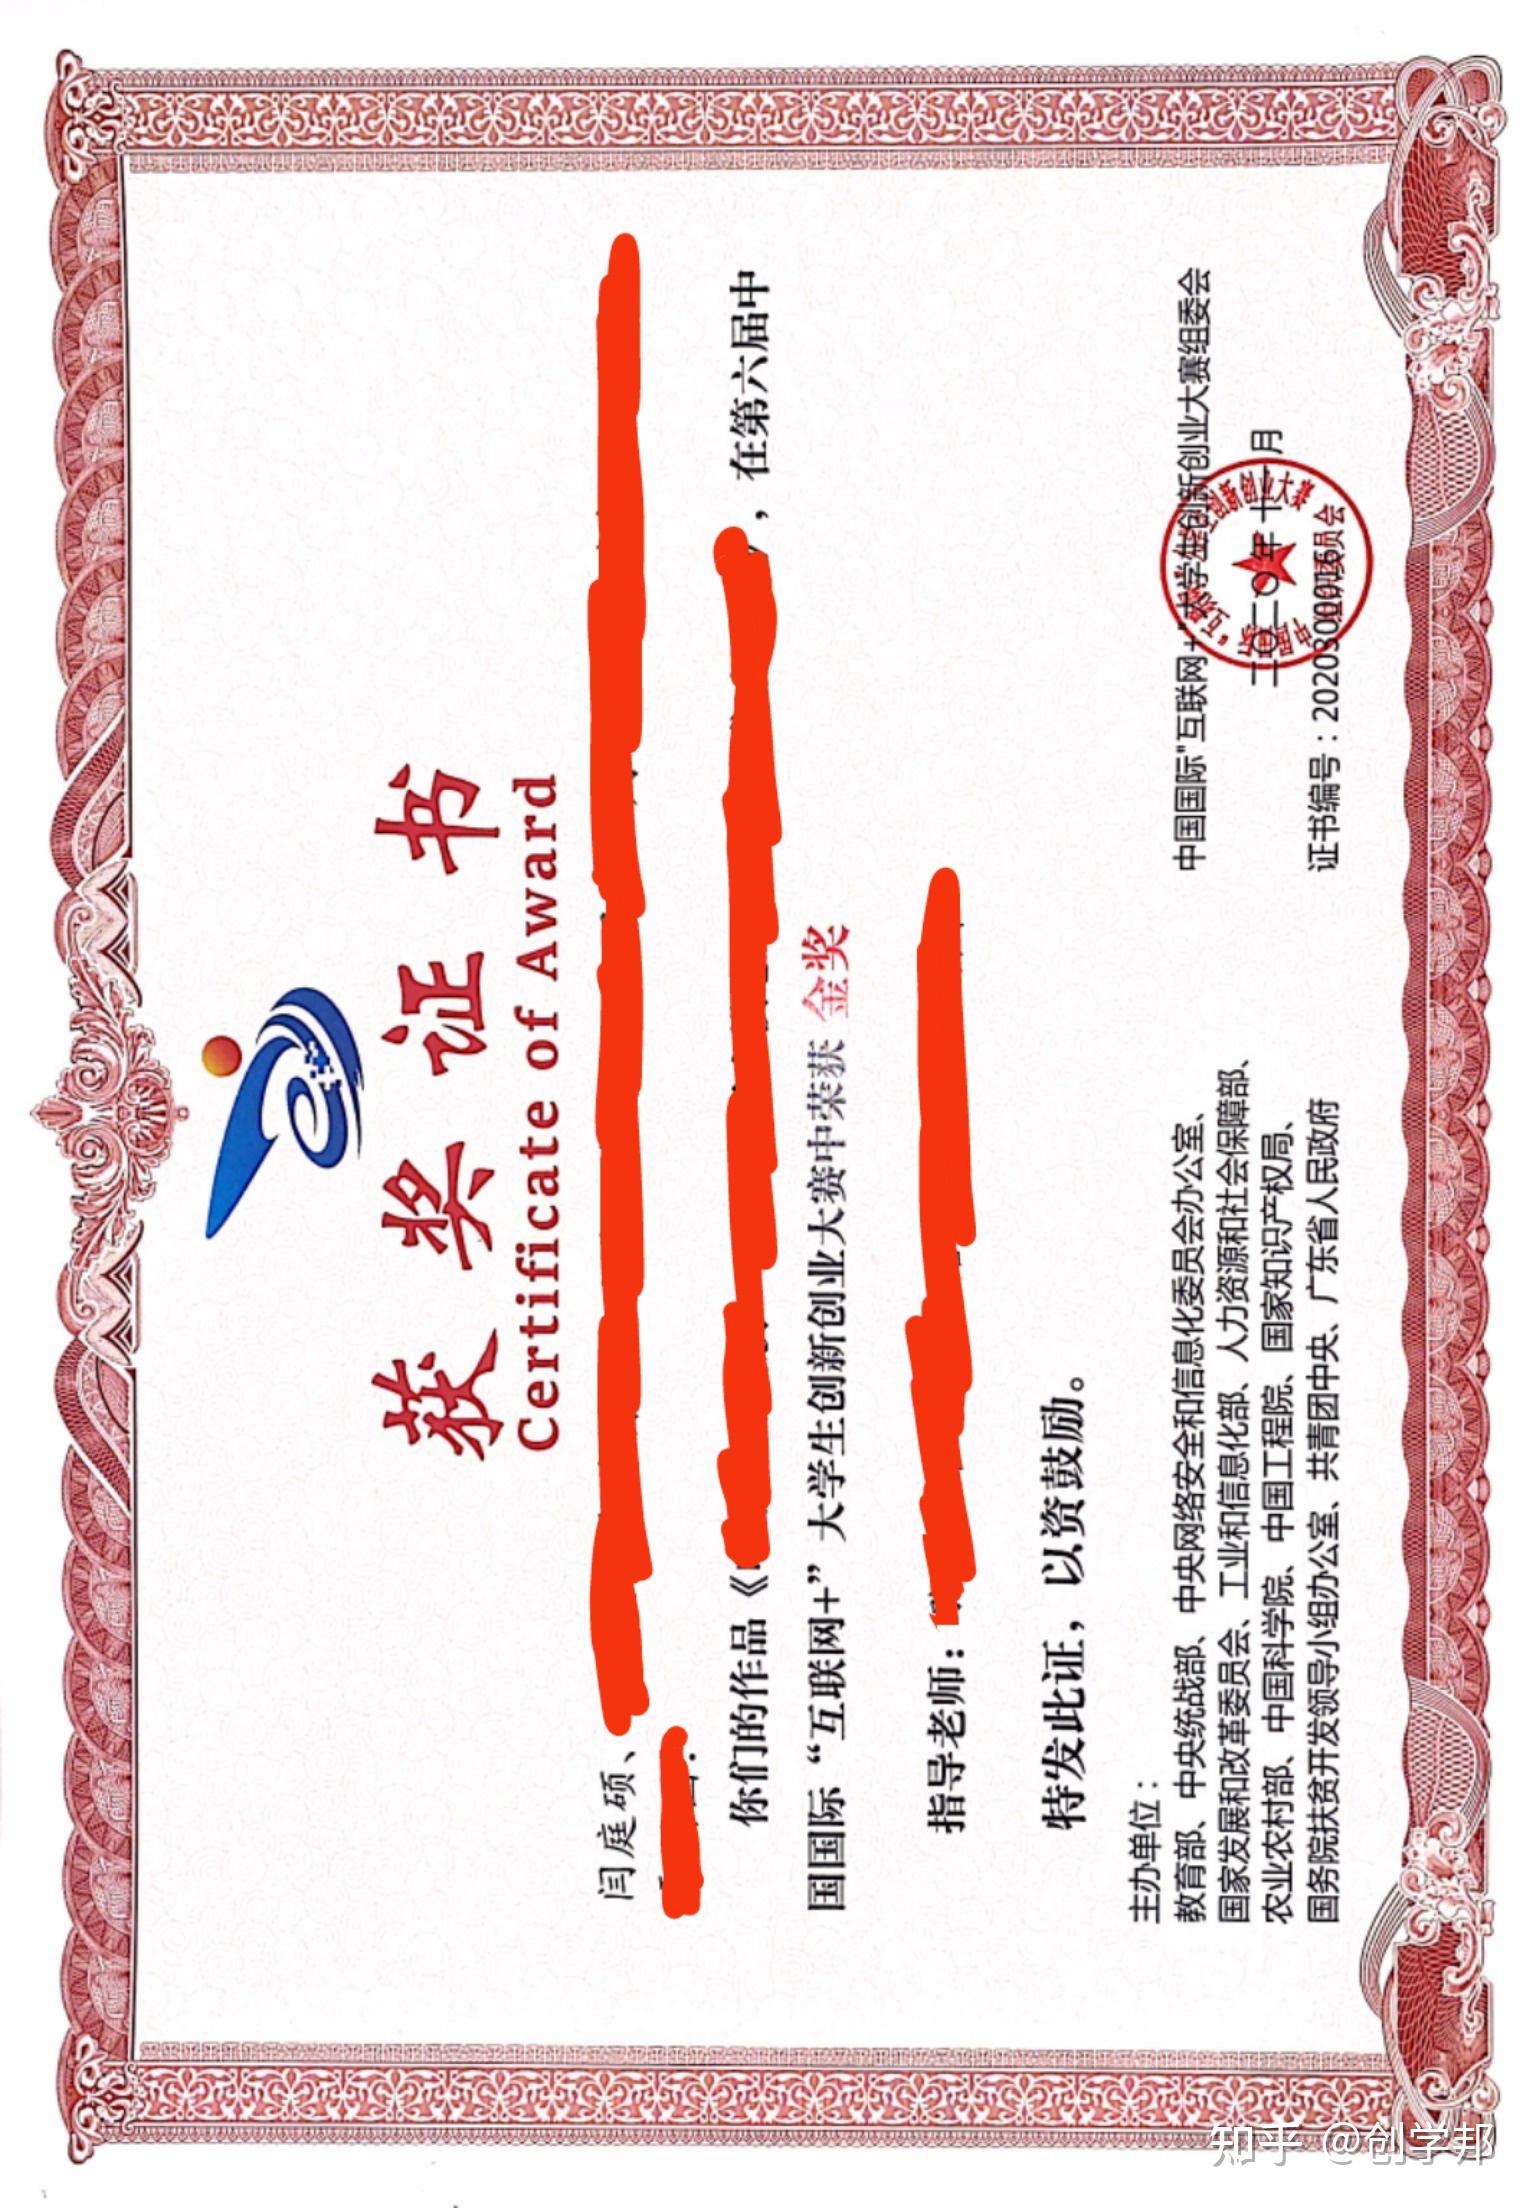 获奖证书
Certificate of Award
闫庭硕、
你们的作品《
，在第六届中
国国际“互联网+”大学生创新创业大赛中荣获 金奖
指导老师：
特发此证，以资鼓励。
主办单位：
教育部、中央统战部、中央网络安全和信息化委员会办公室、
国家发展和改革委员会、工业和信息化部、人力资源和社会保障部、
农业农村部、中国科学院、中国工程院、国家知识产权局、
国务院扶贫开发领导小组办公室、共青团中央、广东省人民政府
中国国际"互联网+"大学生创新创业大赛组委会
二〇二〇年十一月
证书编号：202030
知乎 @创学邦